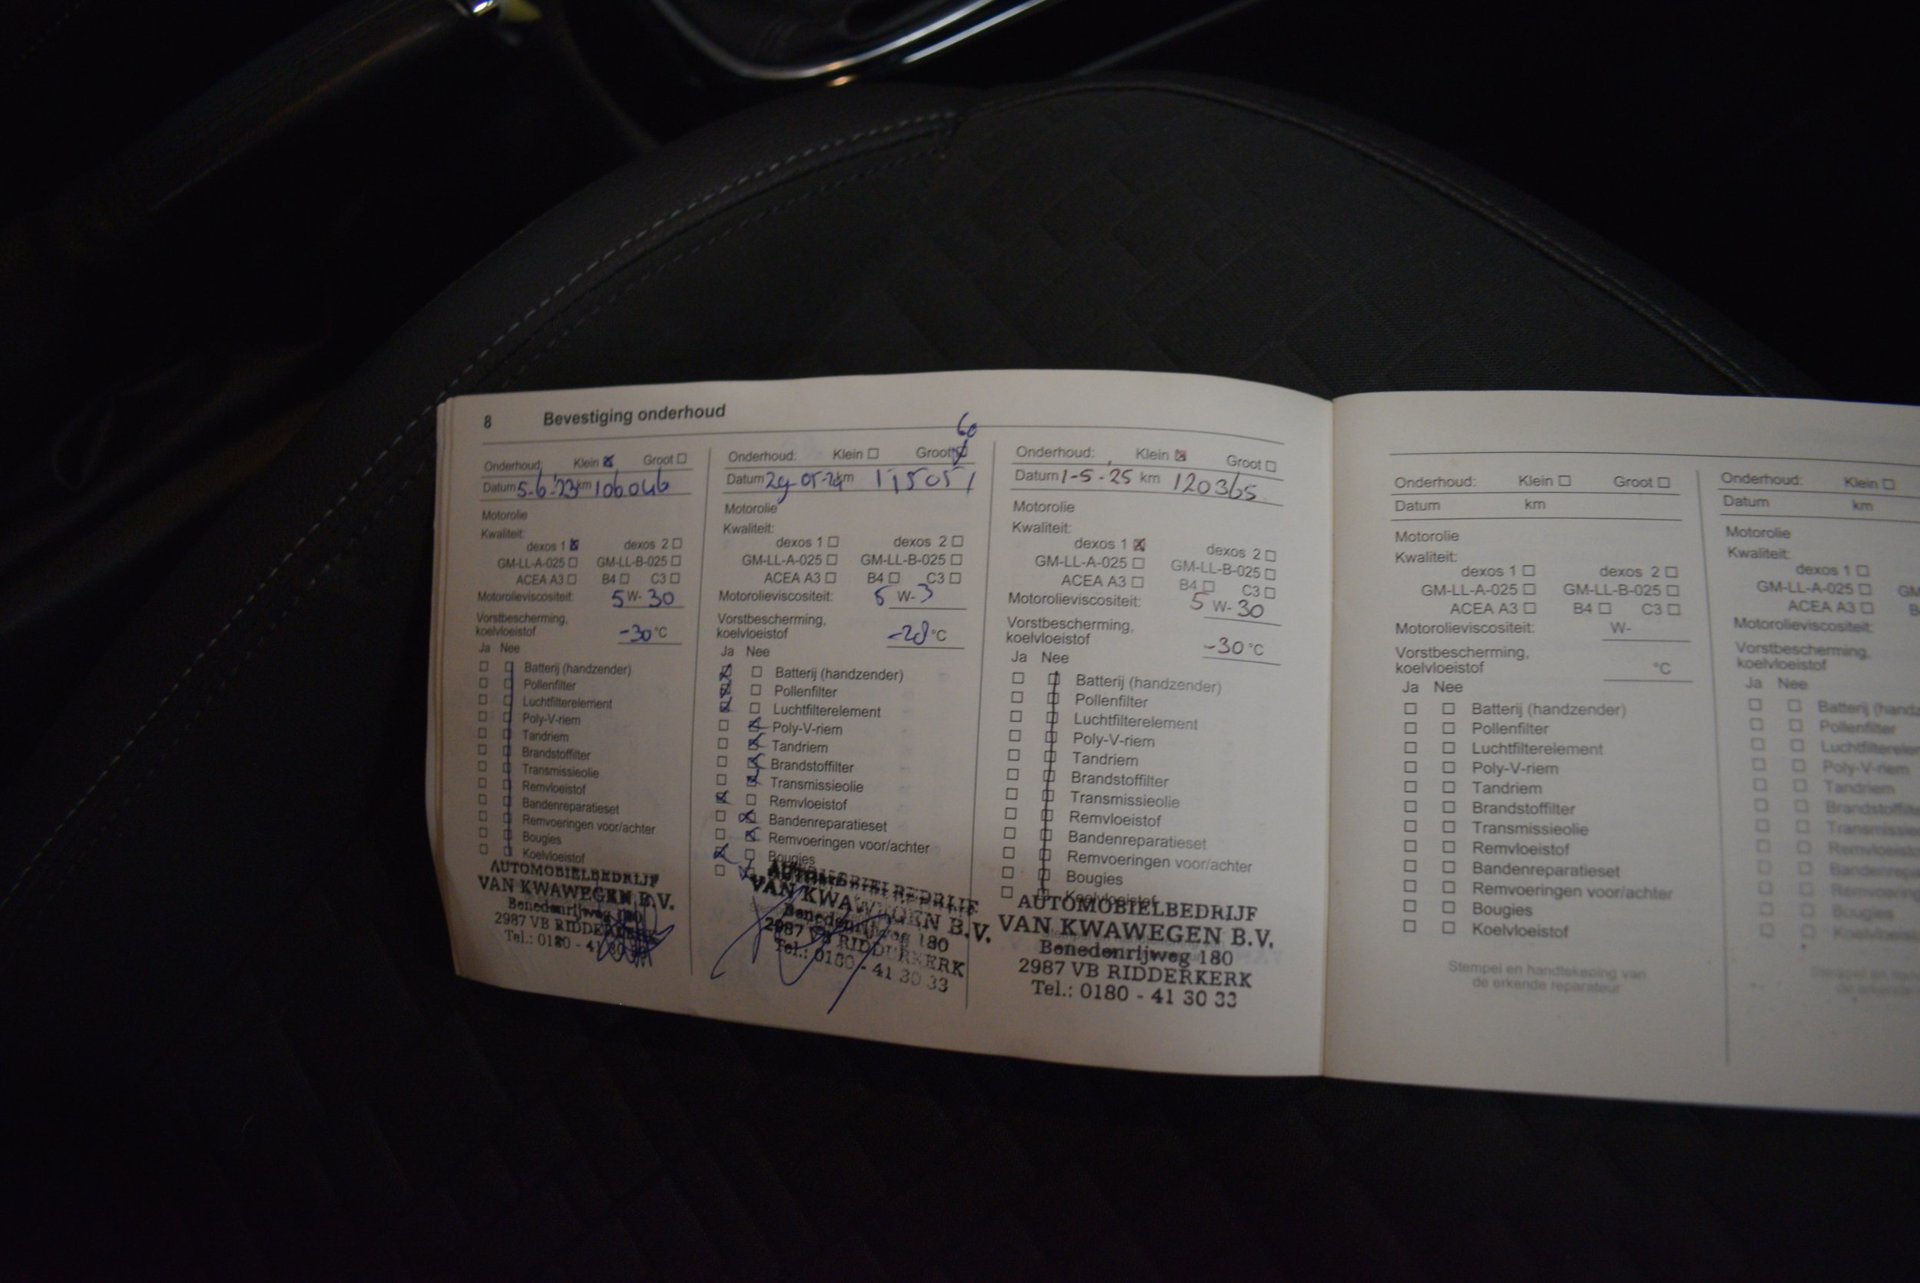 8 Bevestiging onderhoud
Onderhoud: Klein Groot
Datum 5-6-'23 km 106.046
Motorolie
Kwaliteit:
dexos 1 dexos 2
GM-LL-A-025 GM-LL-B-025
ACEA A3 B4 C3
Motorolieviscositeit: 5 W- 30
Vorstbescherming,
koelvloeistof -30 °C
Ja Nee
Batterij (handzender)
Pollenfilter
Luchtfilterelement
Poly-V-riem
Tandriem
Brandstoffilter
Transmissieolie
Remvloeistof
Bandenreparatieset
Remvoeringen voor/achter
Bougies
Koelvloeistof
AUTOMOBIELBEDRIJF
VAN KWAWEGEN B.V.
Benedenrijweg 180
2987 VB RIDDERKERK
Tel.: 0180 - 41 30 33
60
Onderhoud: Klein Groot
Datum 29-05-24 km 115051
Motorolie
Kwaliteit:
dexos 1 dexos 2
GM-LL-A-025 GM-LL-B-025
ACEA A3 B4 C3
Motorolieviscositeit: 5 W- 3
Vorstbescherming,
koelvloeistof -28 °C
Ja Nee
Batterij (handzender)
Pollenfilter
Luchtfilterelement
Poly-V-riem
Tandriem
Brandstoffilter
Transmissieolie
Remvloeistof
Bandenreparatieset
Remvoeringen voor/achter
Bougies
AUTOMOBIELBEDRIJF
VAN KWAWEGEN B.V.
Benedenrijweg 180
2987 VB RIDDERKERK
Tel.: 0180 - 41 30 33
Onderhoud: Klein Groot
Datum 1-5-25 km 120365
Motorolie
Kwaliteit:
dexos 1 dexos 2
GM-LL-A-025 GM-LL-B-025
ACEA A3 B4 C3
Motorolieviscositeit: 5 W- 30
Vorstbescherming,
koelvloeistof -30 °C
Ja Nee
Batterij (handzender)
Pollenfilter
Luchtfilterelement
Poly-V-riem
Tandriem
Brandstoffilter
Transmissieolie
Remvloeistof
Bandenreparatieset
Remvoeringen voor/achter
Bougies
Koelvloeistof
AUTOMOBIELBEDRIJF
VAN KWAWEGEN B.V.
Benedenrijweg 180
2987 VB RIDDERKERK
Tel.: 0180 - 41 30 33
Onderhoud: Klein Groot
Datum km
Motorolie
Kwaliteit:
dexos 1 dexos 2
GM-LL-A-025 GM-LL-B-025
ACEA A3 B4 C3
Motorolieviscositeit: W-
Vorstbescherming,
koelvloeistof °C
Ja Nee
Batterij (handzender)
Pollenfilter
Luchtfilterelement
Poly-V-riem
Tandriem
Brandstoffilter
Transmissieolie
Remvloeistof
Bandenreparatieset
Remvoeringen voor/achter
Bougies
Koelvloeistof
Stempel en handtekening van
de erkende reparateur
Onderhoud: Klein
Datum km
Motorolie
Kwaliteit:
dexos 1
GM-LL-A-025 GM
ACEA A3
Motorolieviscositeit:
Vorstbescherming,
koelvloeistof
Ja Nee
Batterij (handz
Pollenfilter
Luchtfilterele
Poly-V-riem
Tandriem
Brandstoffilte
Transmissie
Remvloeisto
Bandenrepa
Remvoering
Bougies
Koelvloeisto